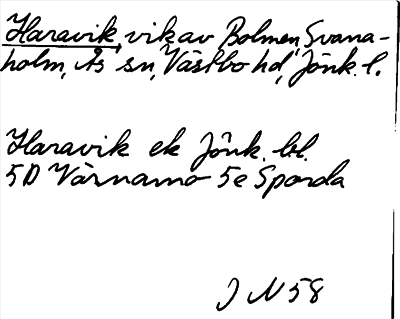 Haravik, vik av Bolmen, Svana-
holm, Ås sn, Västbo hd, Jönk. l.
Haravik ek Jönk. bl.
5D Värnamo 5e Sporda
J N 58